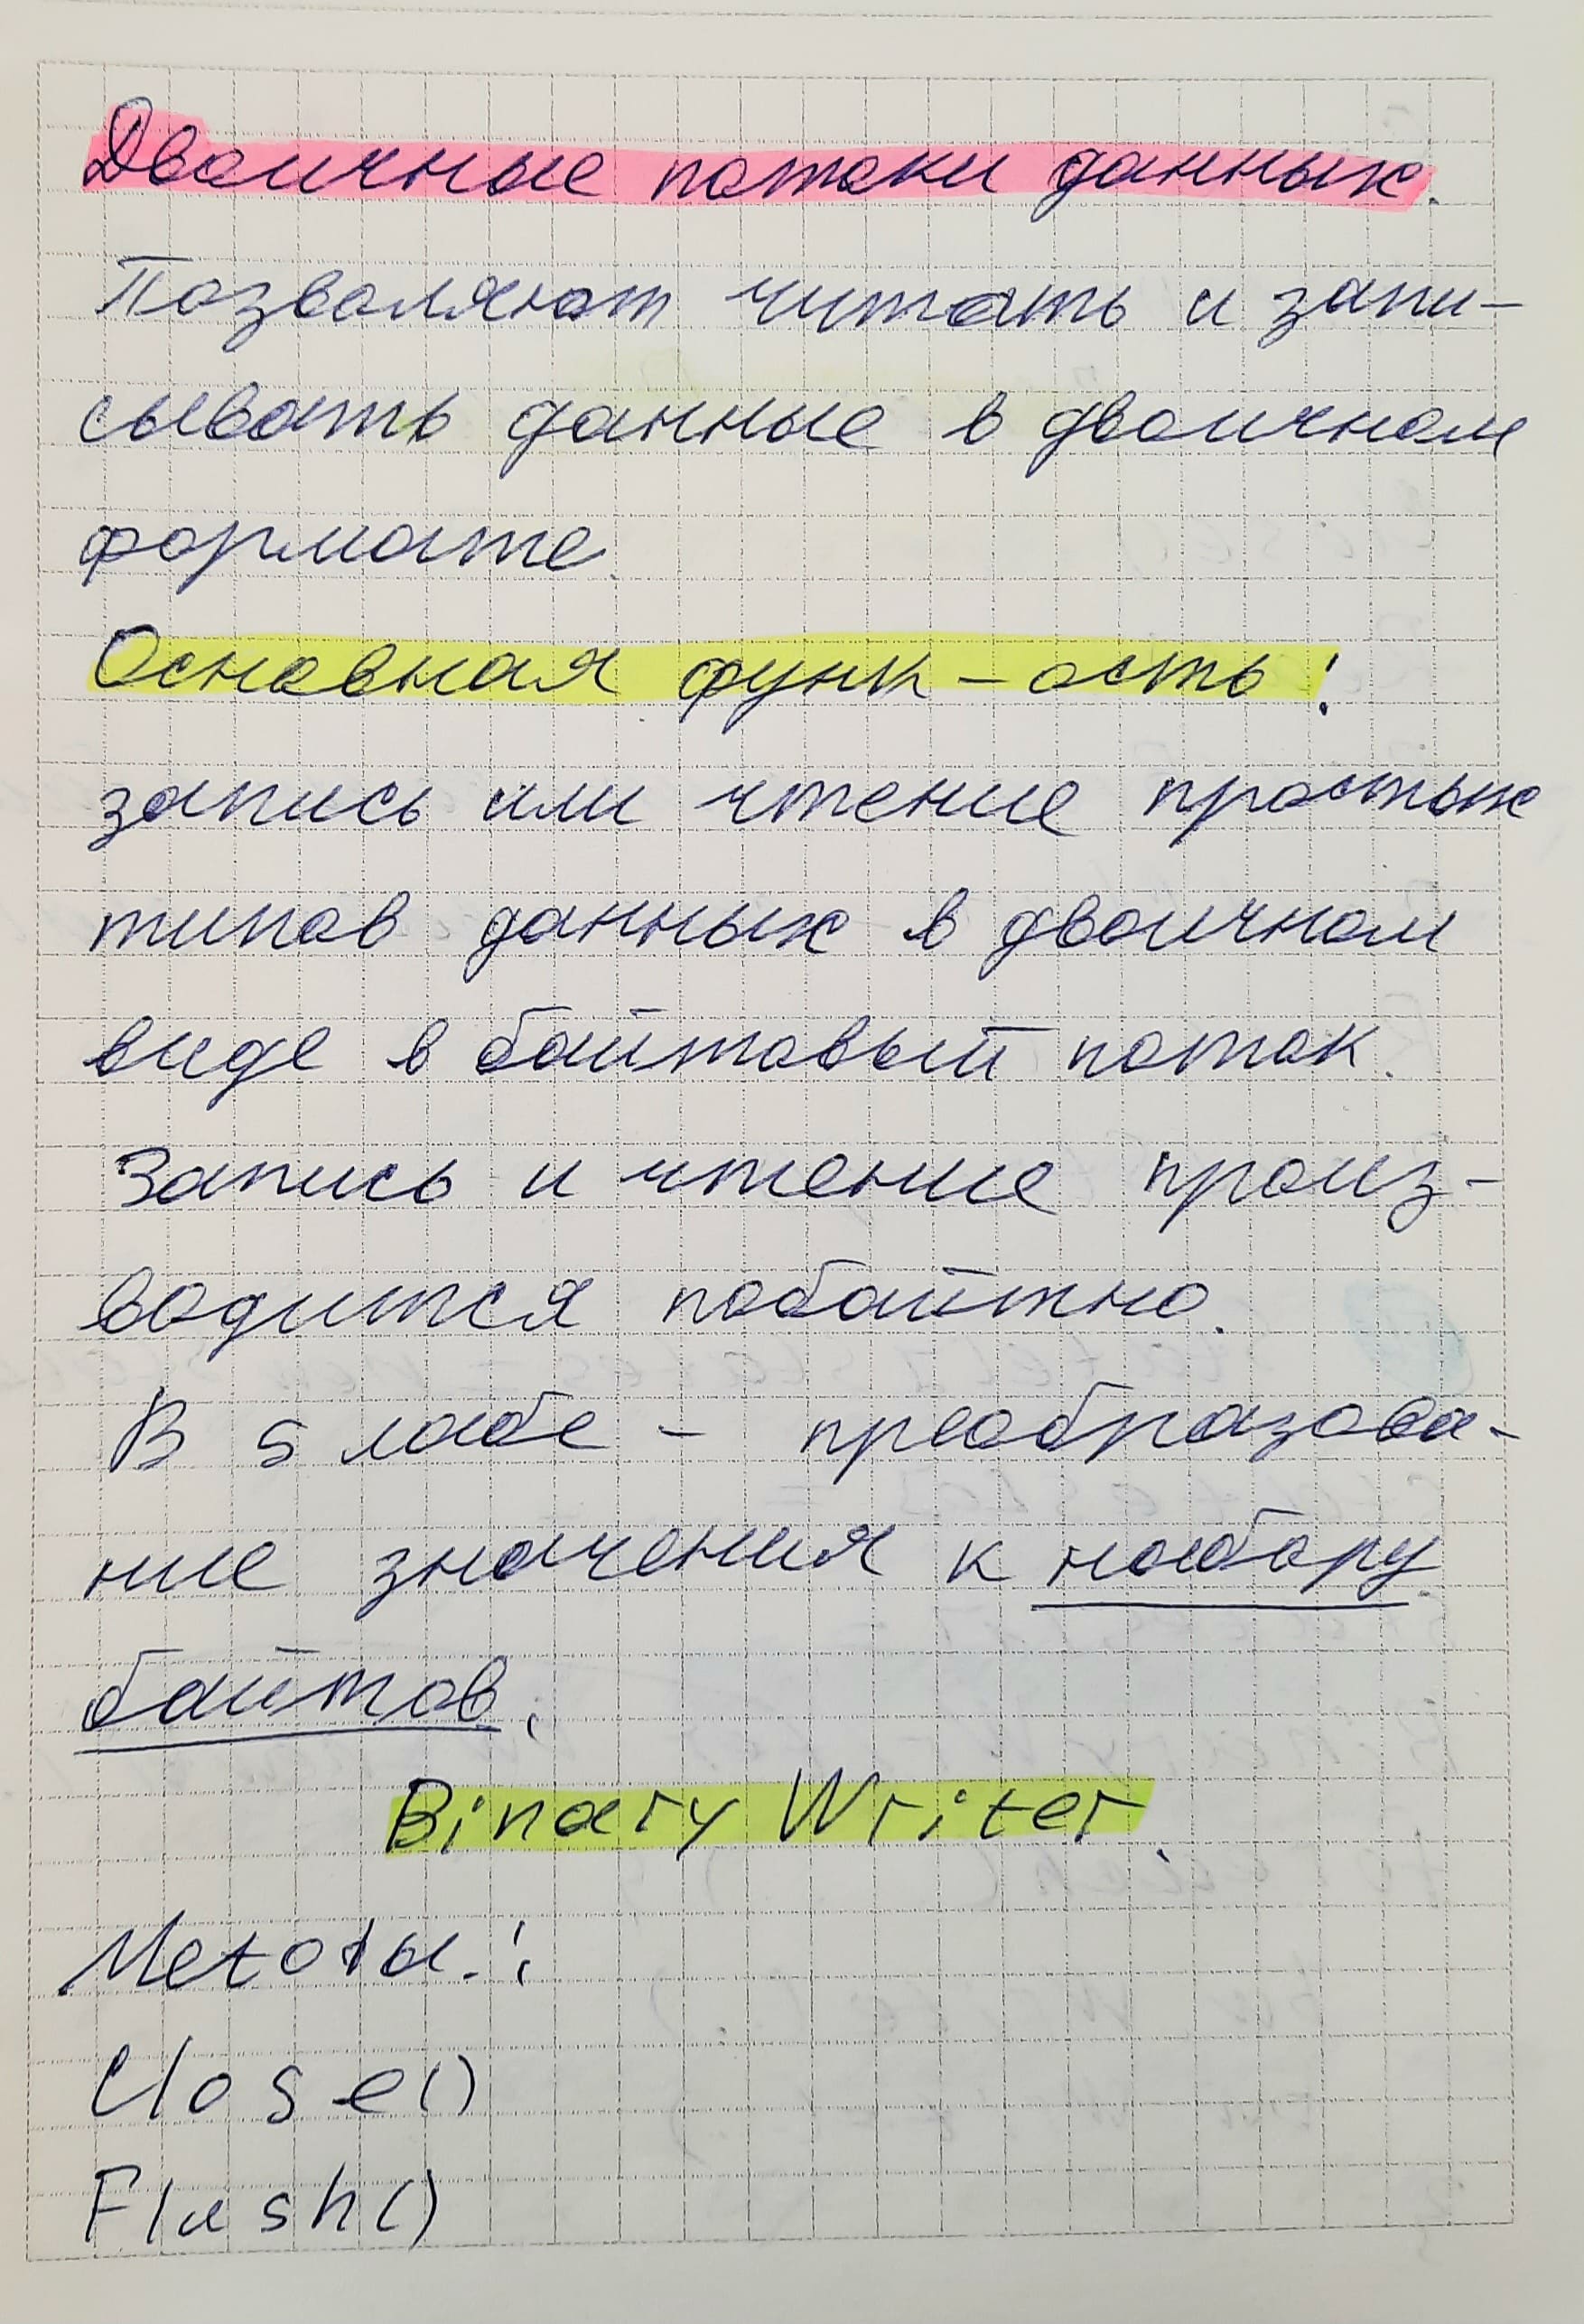 Двоичные потоки данных.
Позволяют читать и запи-
сывать данные в двоичном
формате.
Основная функ-ость:
запись или чтение простых
типов данных в двоичном
виде в байтовый поток.
Запись и чтение произ-
водится побайтно.
В 5 лабе - преобразова-
ние значения к набору
байтов.
Binary Writer.
Metoды.:
Close()
Flush()